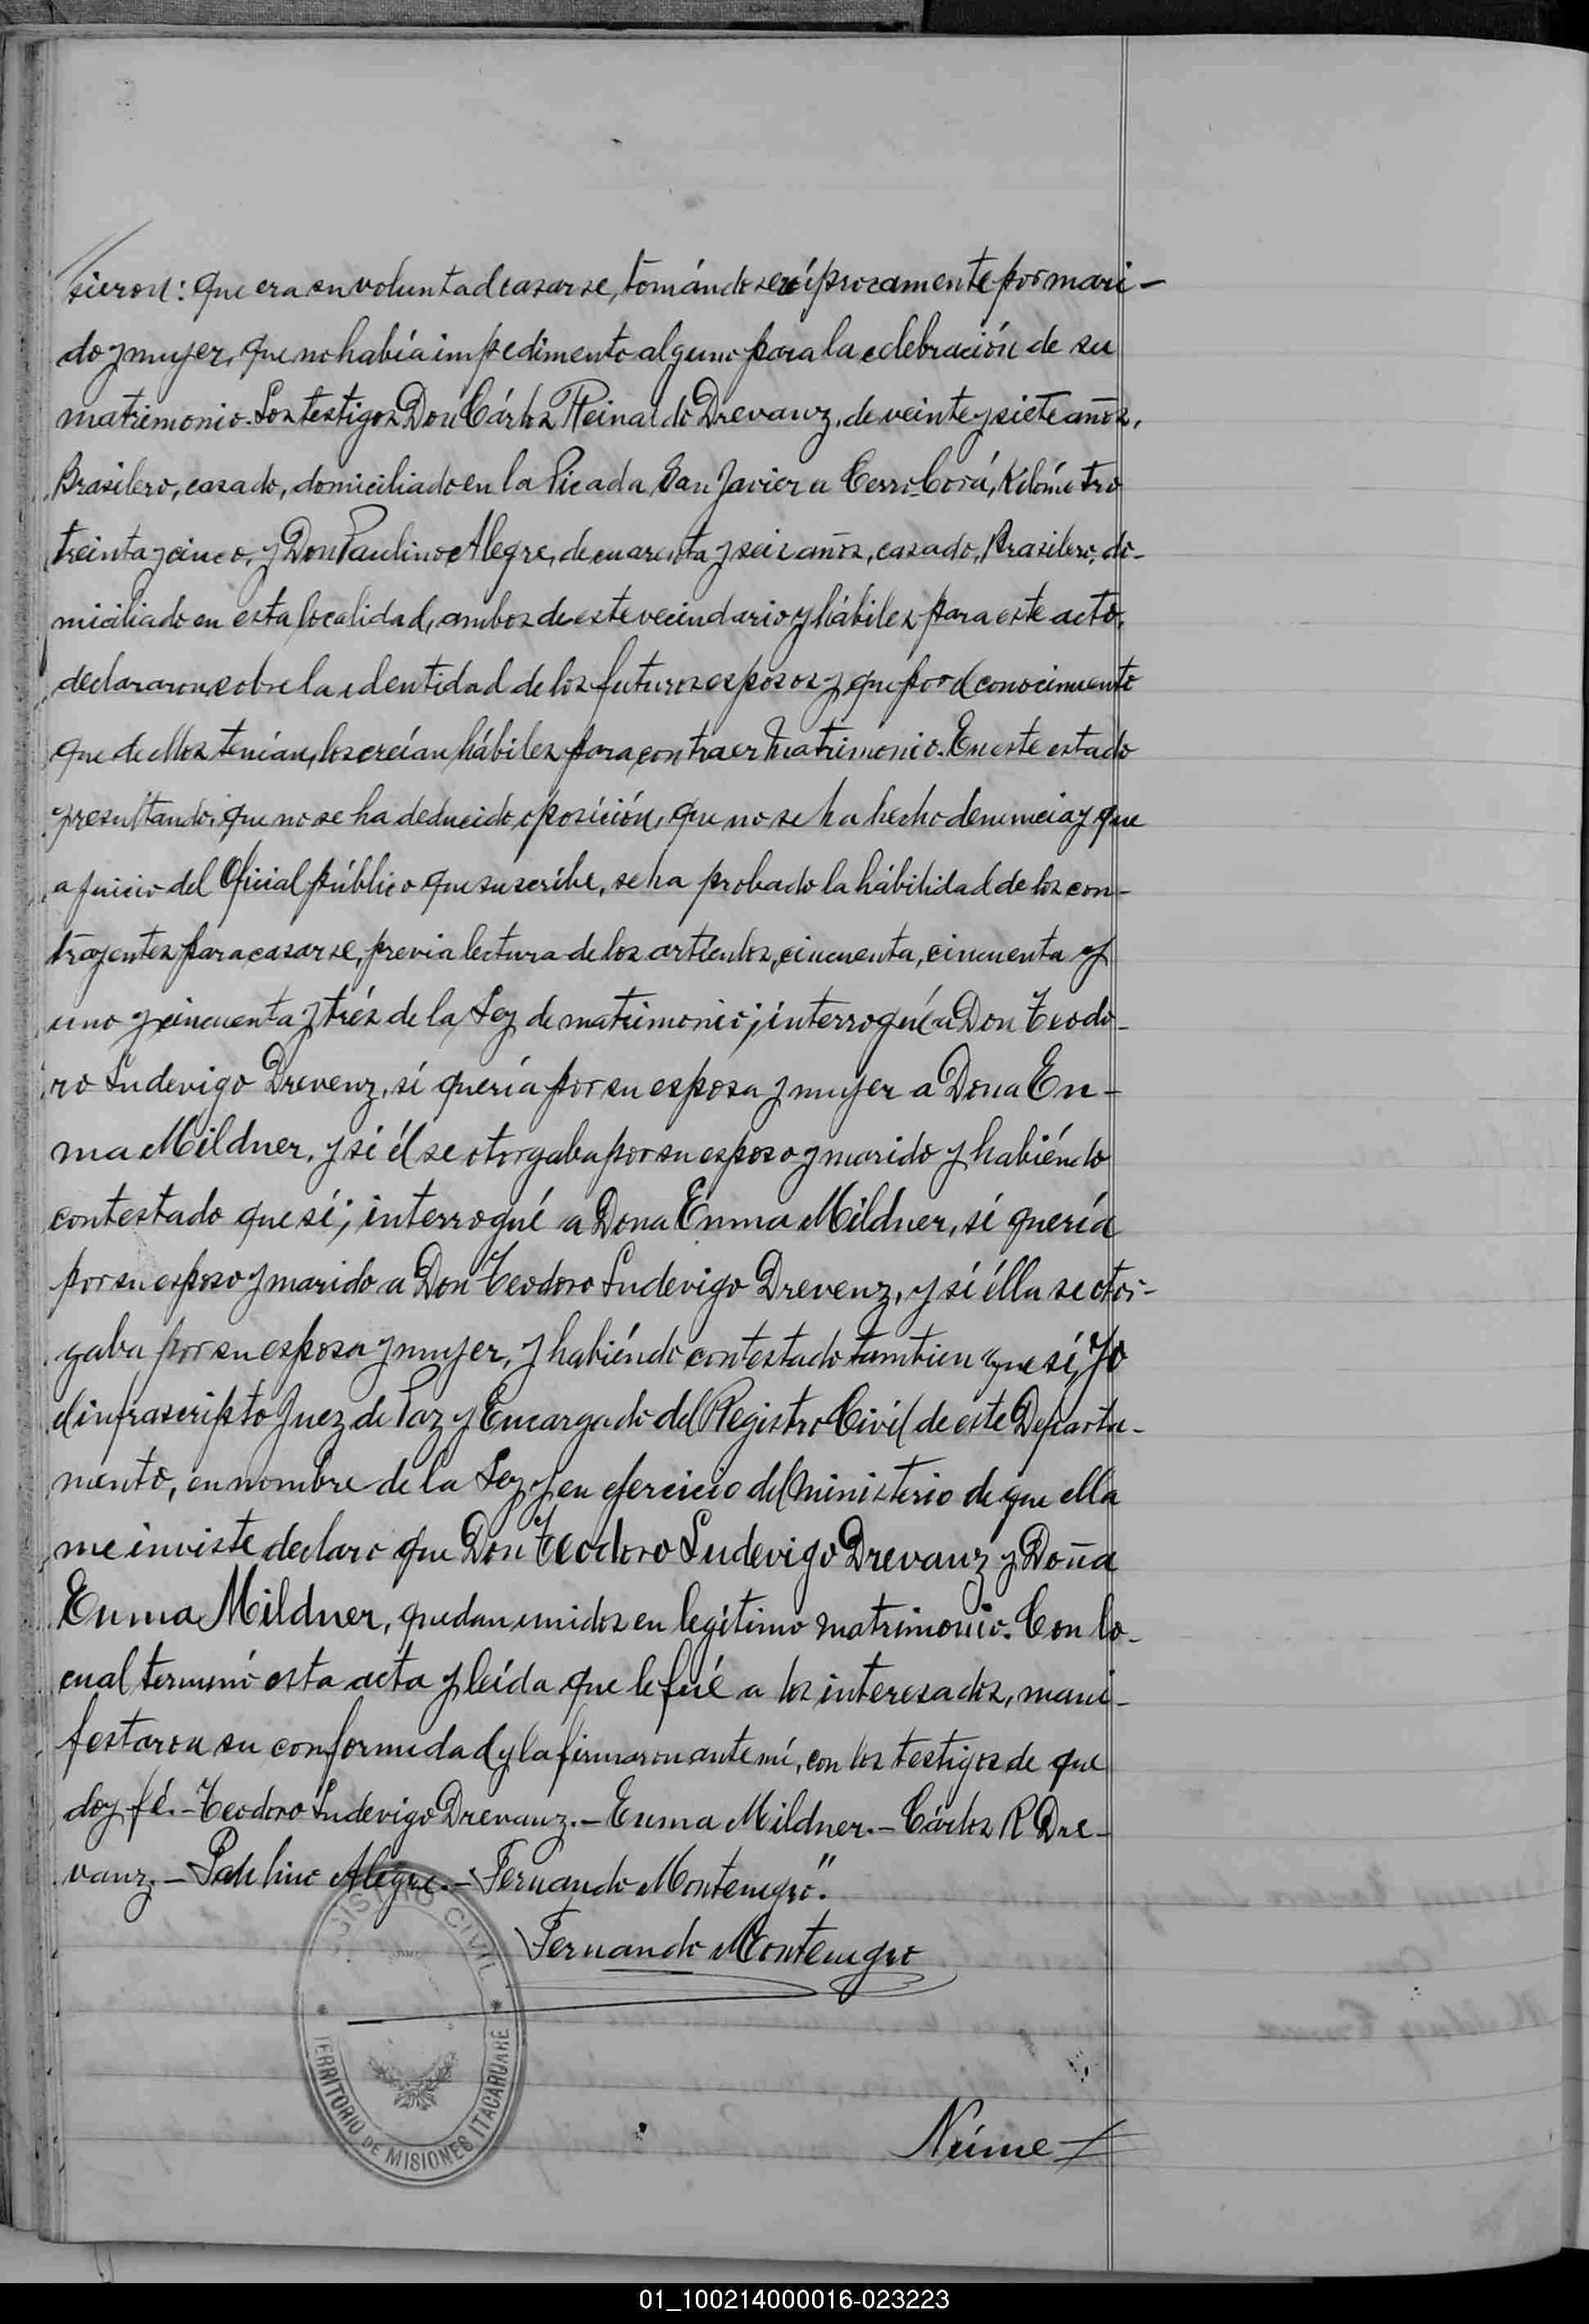 sieron: que era su voluntad casarse, tomándose recíprocamente por mari-
do y mujer, que no había impedimento alguno para la celebración de su
matrimonio. Los testigos Don Cárlos Reinaldo Drevanz, de veinte y siete años,
Brasilero, casado, domiciliado en la Picada San Javier a Cerro-Corá, Kilómetro
treinta y cinco, y Don Paulino Alegre, de cuarenta y seis años, casado, Brasilero, do-
miciliado en esta localidad, ambos de este vecindario y hábiles para este acto,
declararon sobre la identidad de los futuros esposos y que por el conocimiento
que de ellos tenían, los creían hábiles para contraer matrimonio. En este estado
y resultando, que no se ha deducido oposición, que no se ha hecho denuncia y que
a juicio del Oficial público que suscribe, se ha probado la hábilidad de los con-
trayentes para casarse, previa lectura de los artículos, cincuenta, cincuenta y
uno y cincuenta y trés de la Ley de matrimonio; interrogué a Don Teodo-
ro Ludevigo Drevenz, sí quería por su esposa y mujer a Dona En-
ma Mildner, y si él se otorgaba por su esposo y marido y habiéndo
contestado que sí; interrogué a Dona Enma Mildner, sí quería
por su esposo y marido a Don Teodoro Ludevigo Drevenz, y sí élla se otor-
gaba por su esposa y mujer, y habiéndo contestado tambien que sí, Yo
el infrascripto Juez de Paz y Encargado del Registro Civíl de éste Departa-
mento, en nombre de la Ley y en ejercicio del ministerio de que ella
me inviste declaro que Don Teodoro Ludevigo Drevanz y Doña
Enma Mildner, quedan unidos en legítimo matrimonio. Con lo-
cual terminó esta acta y leída que le fué a los interesados, mani-
festaron su conformidad y la firmaron ante mí, con los testigos de que
doy fé. - Teodoro Ludevigo Drevanz. - Enma Mildner. - Cárlos R Dre-
vanz. - Paulino Alegre. - Fernando Montenegro".
Fernando Montenegro
REGISTRO CIVIL
TERRITORIO DE MISIONES ITACARUARÉ
Núme
01_100214000016-023223